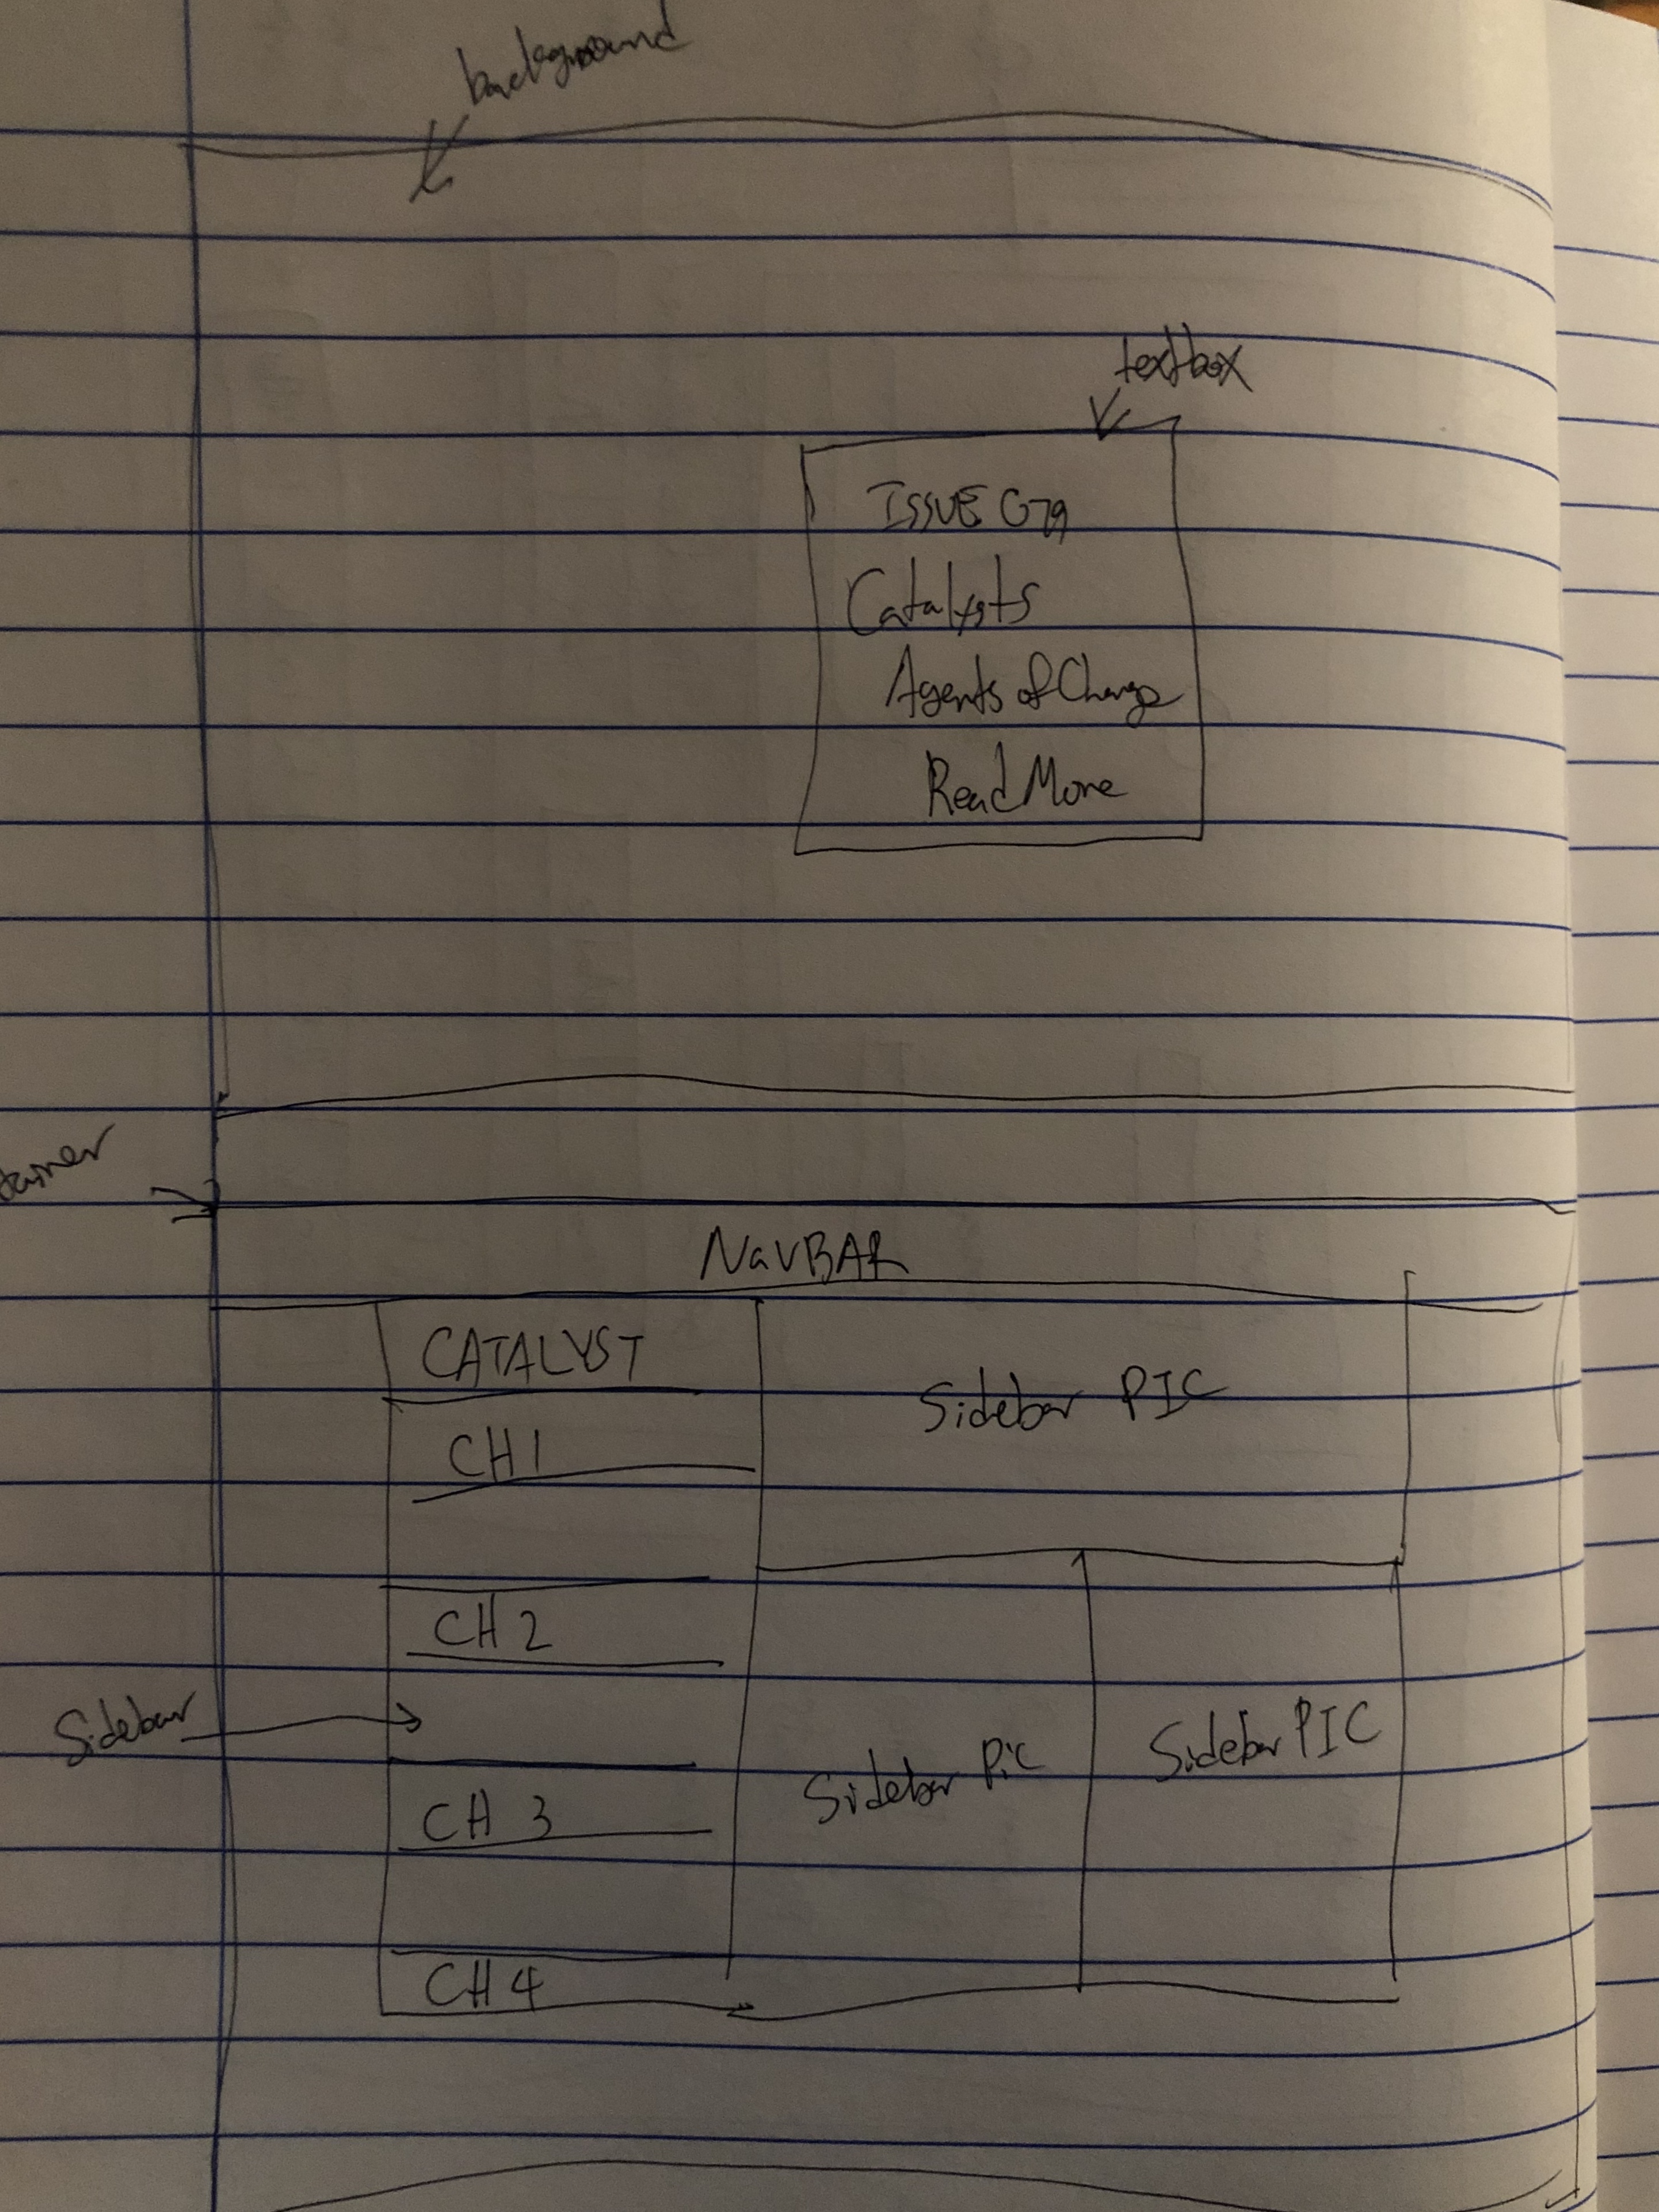 background
textbox
ISSUE G79
Catalysts
Agents of Change
Read More
NavBAR
CATALYST
Sidebar PIC
CH1
CH 2
Sidebar
Sidebar Pic
Sidebar PIC
CH 3
CH 4